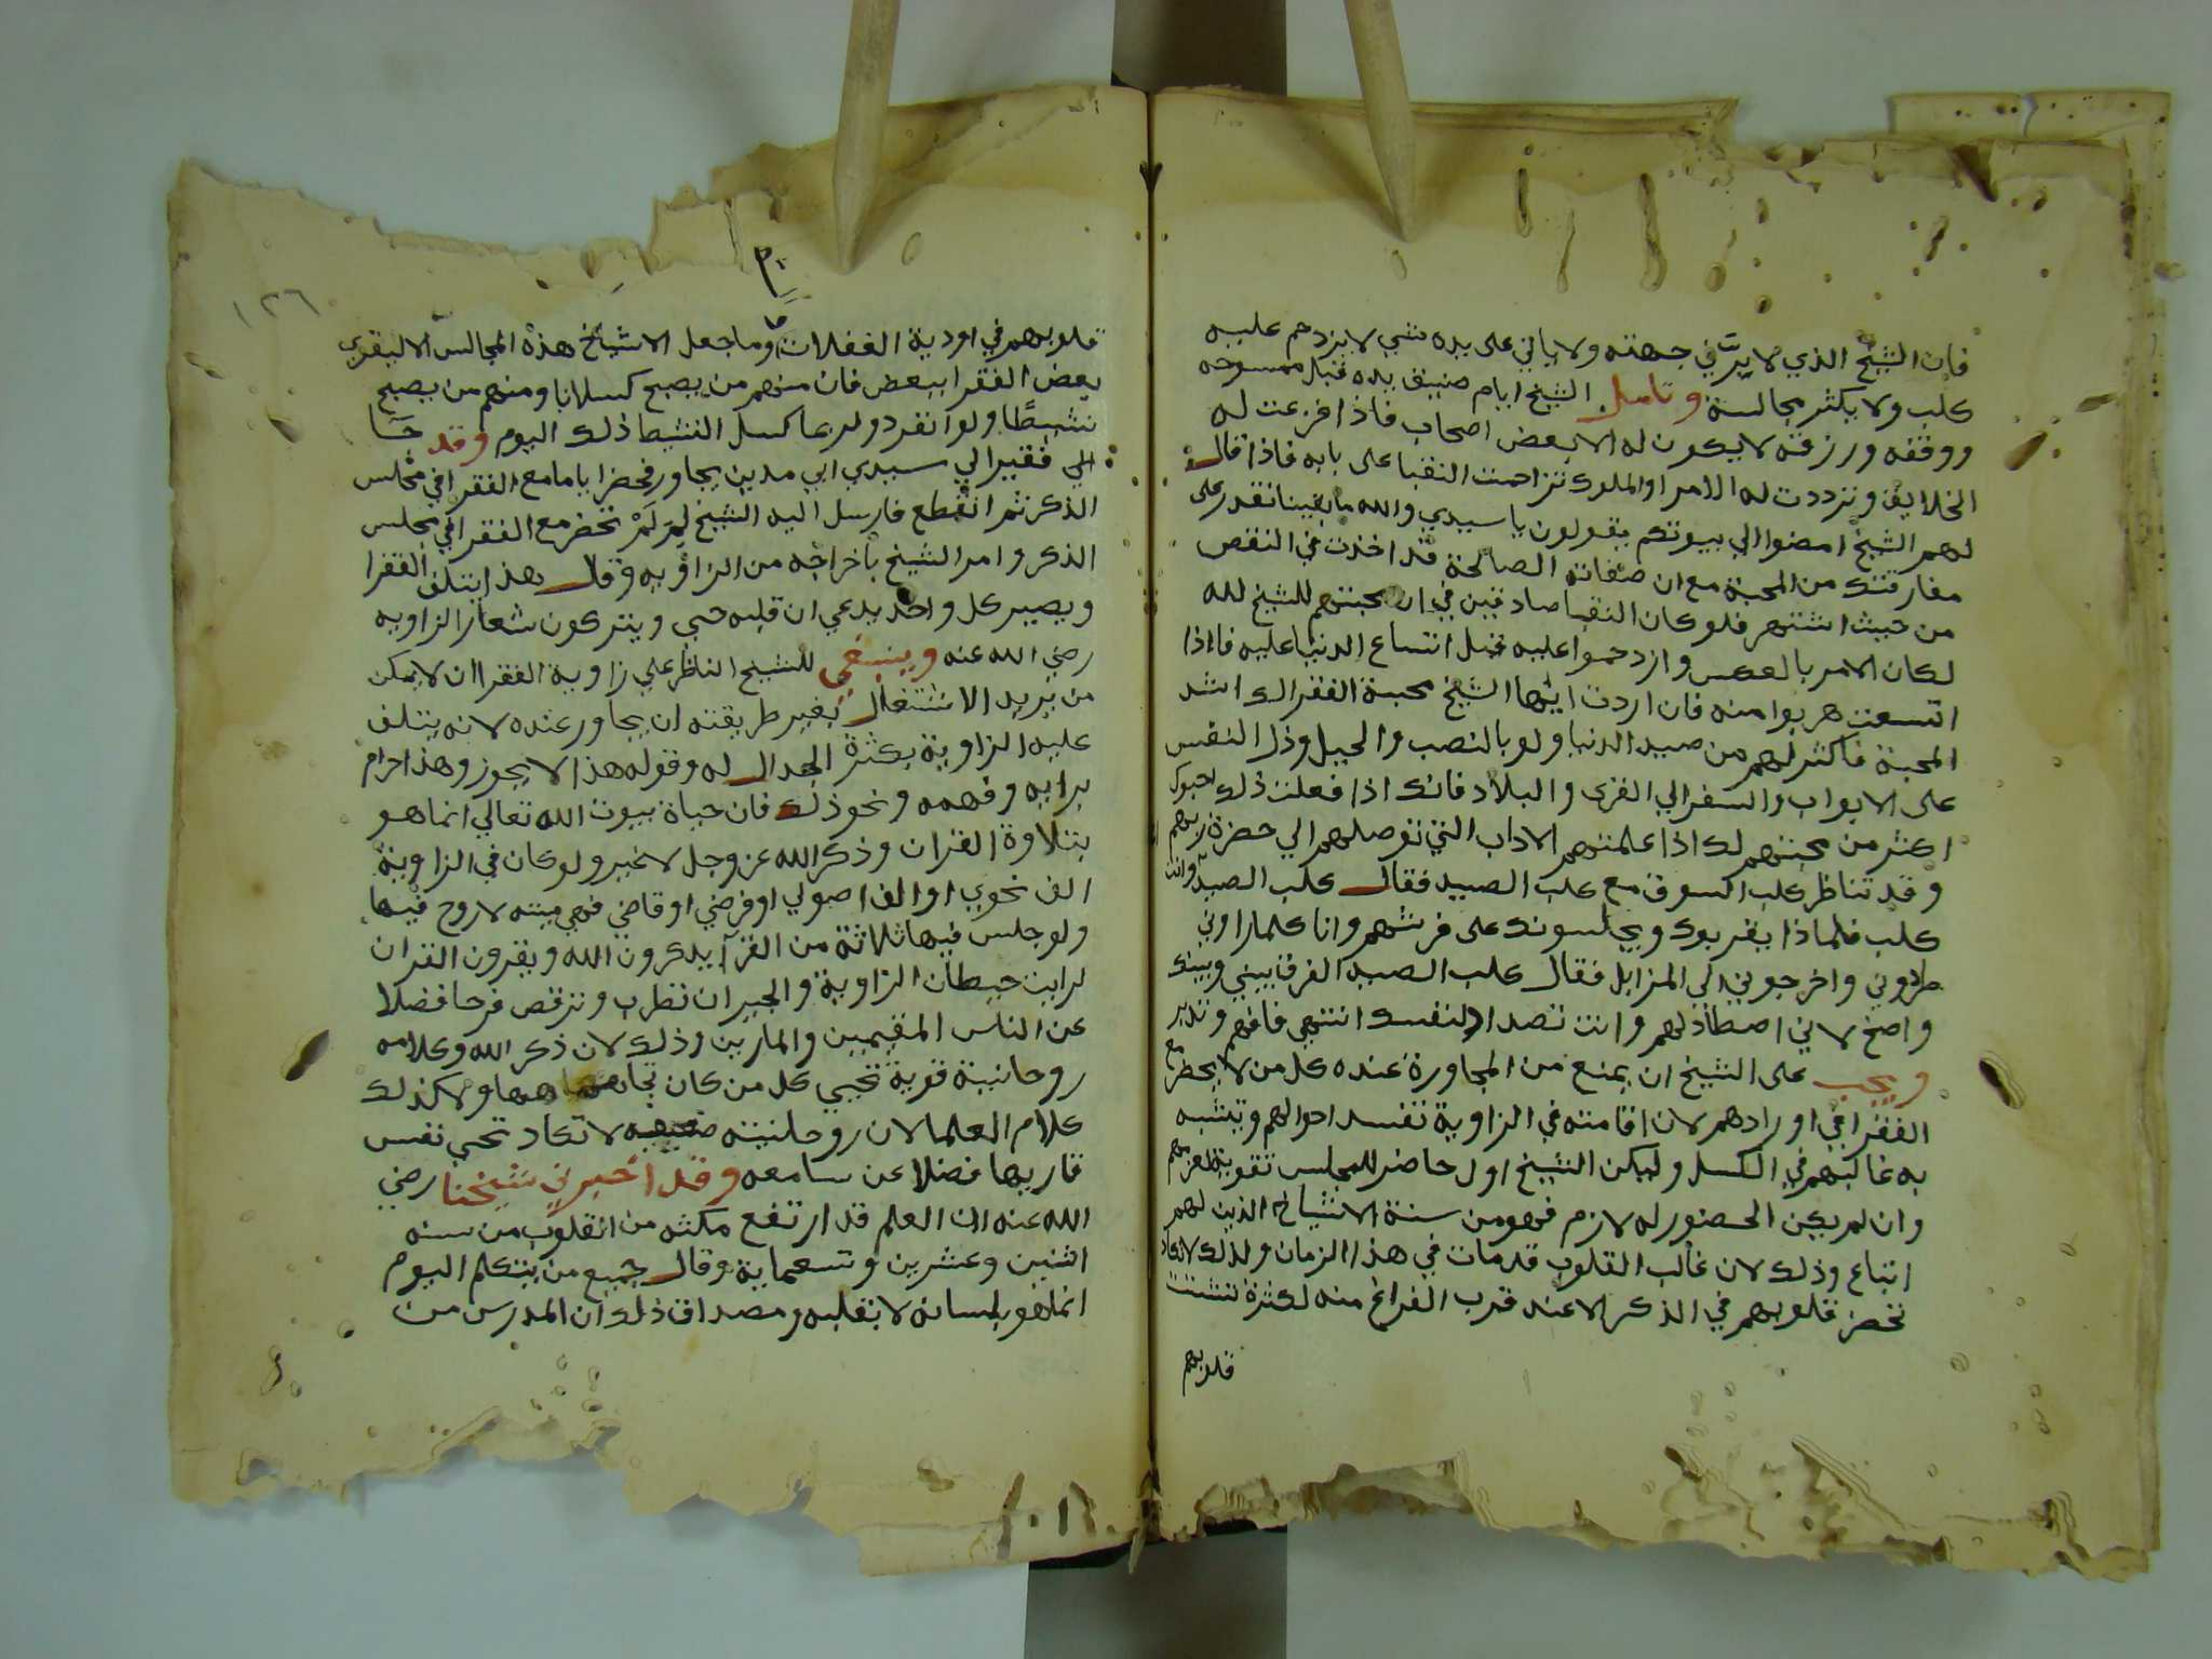 فان الشيخ الذي لا برّ في جهته ولا ياتي على يده شي لا يزدحم عليه
كلب ولا يكثر مجالسة وتامل الشيخ ايام ضيق يده قبل مسموحه
ووقفه ورزقته لا يكون له الا بعض اصحاب فاذا فزعت له
الخلايق وترددت له الامرا والملوك تزاحمت النقبا على بابه فاذا قال
لهم الشيخ امضوا الي بيوتكم يقولون يا سيدي والله ما بقينا نقدر على
مفارقتك من المحبة مع ان صفاته الصالحة قد اخذت في النقص
من حيث اشتهر فلو كان النقبا صادقين في ان محبتهم للشيخ لله
لكان الامر بالعكس وازدحموا عليه قبل اتساع الدنيا عليه فاذا
اتسعت هربوا منه فان اردت ايها الشيخ محبة الفقرا لك اشد
المحبة فاكثر لهم من صيد الدنيا ولو بالنصب والحيل وذل النفس
على الابواب والسفر الي القرى والبلاد فانك اذا فعلت ذلك احبوك
اكثر من محبتهم لك اذا علمتهم الاداب التي توصلهم الي حضرة ربهم
وقد تناظر كلب السوق مع كلب الصيد فقال كلب الصيد وانت
كلب فلماذا يقربوك ويجلسونك على فرشهم وانا كلما راوني
طردوني واخرجوني الي المزابل فقال كلب الصيد الفرق بيني وبينك
واضح لاني اصطاد لهم وانت تصطاد لنفسك انتهى فافهم وتدبر
ويجب على الشيخ ان يمنع من المجاورة عنده كل من لا يحضر مع
الفقرا في اورادهم لان اقامته في الزاوية تفسد احوالهم ويتشبه
به غالبهم في الكسل وليكن الشيخ اول حاضر للمجلس تقوية لعزمهم
وان لم يكن الحضور له لازم فهو من سنة الاشياخ الذين لهم
اتباع وذلك لان غالب القلوب قد مات في هذا الزمان ولذلك لا تكاد
تحضر قلوبهم في الذكر الا عند قرب الفراغ منه لكثرة تشتت
قلوبهم
١٢٦
قلوبهم في اودية الغفلات وما جعل الاشياخ هذه المجالس الا ليقوي
بعض الفقرا ببعض فان منهم من يصبح كسلانا ومنهم من يصبح
نشيطًا ولو انفرد ولربما كسل النشيط ذلك اليوم وقد جَا
الي فقيرا لي سيدي ابي مدين يجاور فحضر اياما مع الفقرا في مجلس
الذكر ثم انقطع فارسل اليه الشيخ لِمَ لَمْ تحضر مع الفقرا في مجلس
الذكر وامر الشيخ باخراجه من الزاويه وقال هذا يتلف الفقرا
ويصير كل واحد يدعي ان قلبه حي ويتركون شعار الزاويه
رضي الله عنه وينبغي للشيخ الناظر على زاوية الفقرا ان لا يمكن
من يريد الاشتغال بغير طريقته ان يجاور عنده لانه يتلف
عليه الزاوية بكثرة الجدال له وقوله هذا لا يجوز وهذا حرام
برايه وفهمه ونحو ذلك فان حياة بيوت الله تعالي انما هو
بتلاوة القران وذكر الله عز وجل لا غير ولو كان في الزاوية
الف نحوي او الف اصولي او فرضي او قاضي فهي ميته لا روح فيها
ولو جلس فيها ثلاثة من القرآ يذكرون الله ويقرون القران
لرايت حيطان الزاوية والجيران تطرب وترقص فرحا فضلا
عن الناس المقيمين والمارين وذلك لان ذكر الله وكلامه
روحانية قوية تحيي كل من كان ولا كذلك
كلام العلما لان روحانيته ضعيفه لا تكاد تحي نفس
قاريها فضلا عن سامعه وقد اخبرني شيخنا رضي
الله عنه ان العلم قد ارتفع مكثه من القلوب من سنه
اثنين وعشرين وتسعماية وقال جميع من يتكلم اليوم
انما هو بلسانه لا بقلبه ومصداق ذلك ان المدرس من